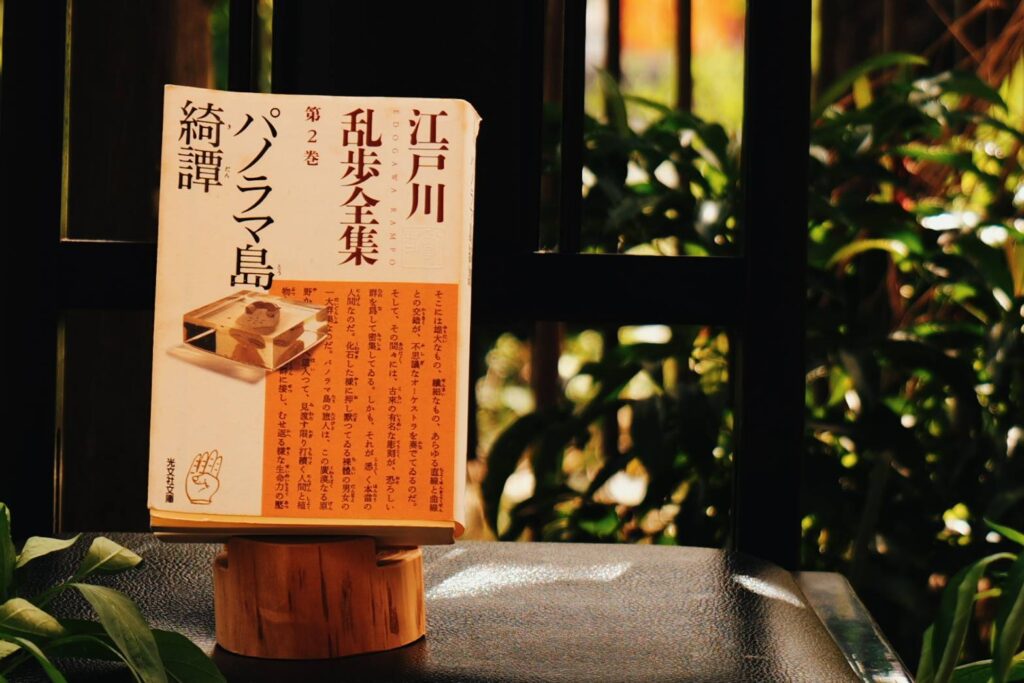 江戸川
乱歩全集
EDOGAWA RAMPO
第2巻
パノラマ島
綺譚
そこには雄大なもの、繊細なもの、あらゆる直線と曲線
との交錯が、不思議なオーケストラを奏でてゐるのだ。
そして、その間々には、古来の有名な彫刻が、恐ろしい
群を為して密集してゐる。しかも、それが悉く本当の
人間なのだ。化石した様に押し黙つてゐる裸体の男女の
一大群集なのだ。パノラマ島の旅人は、この広漠なる原
入つて、見渡す限り打続く人間と植
接し、むせ返る様な生命力の圧
光文社文庫